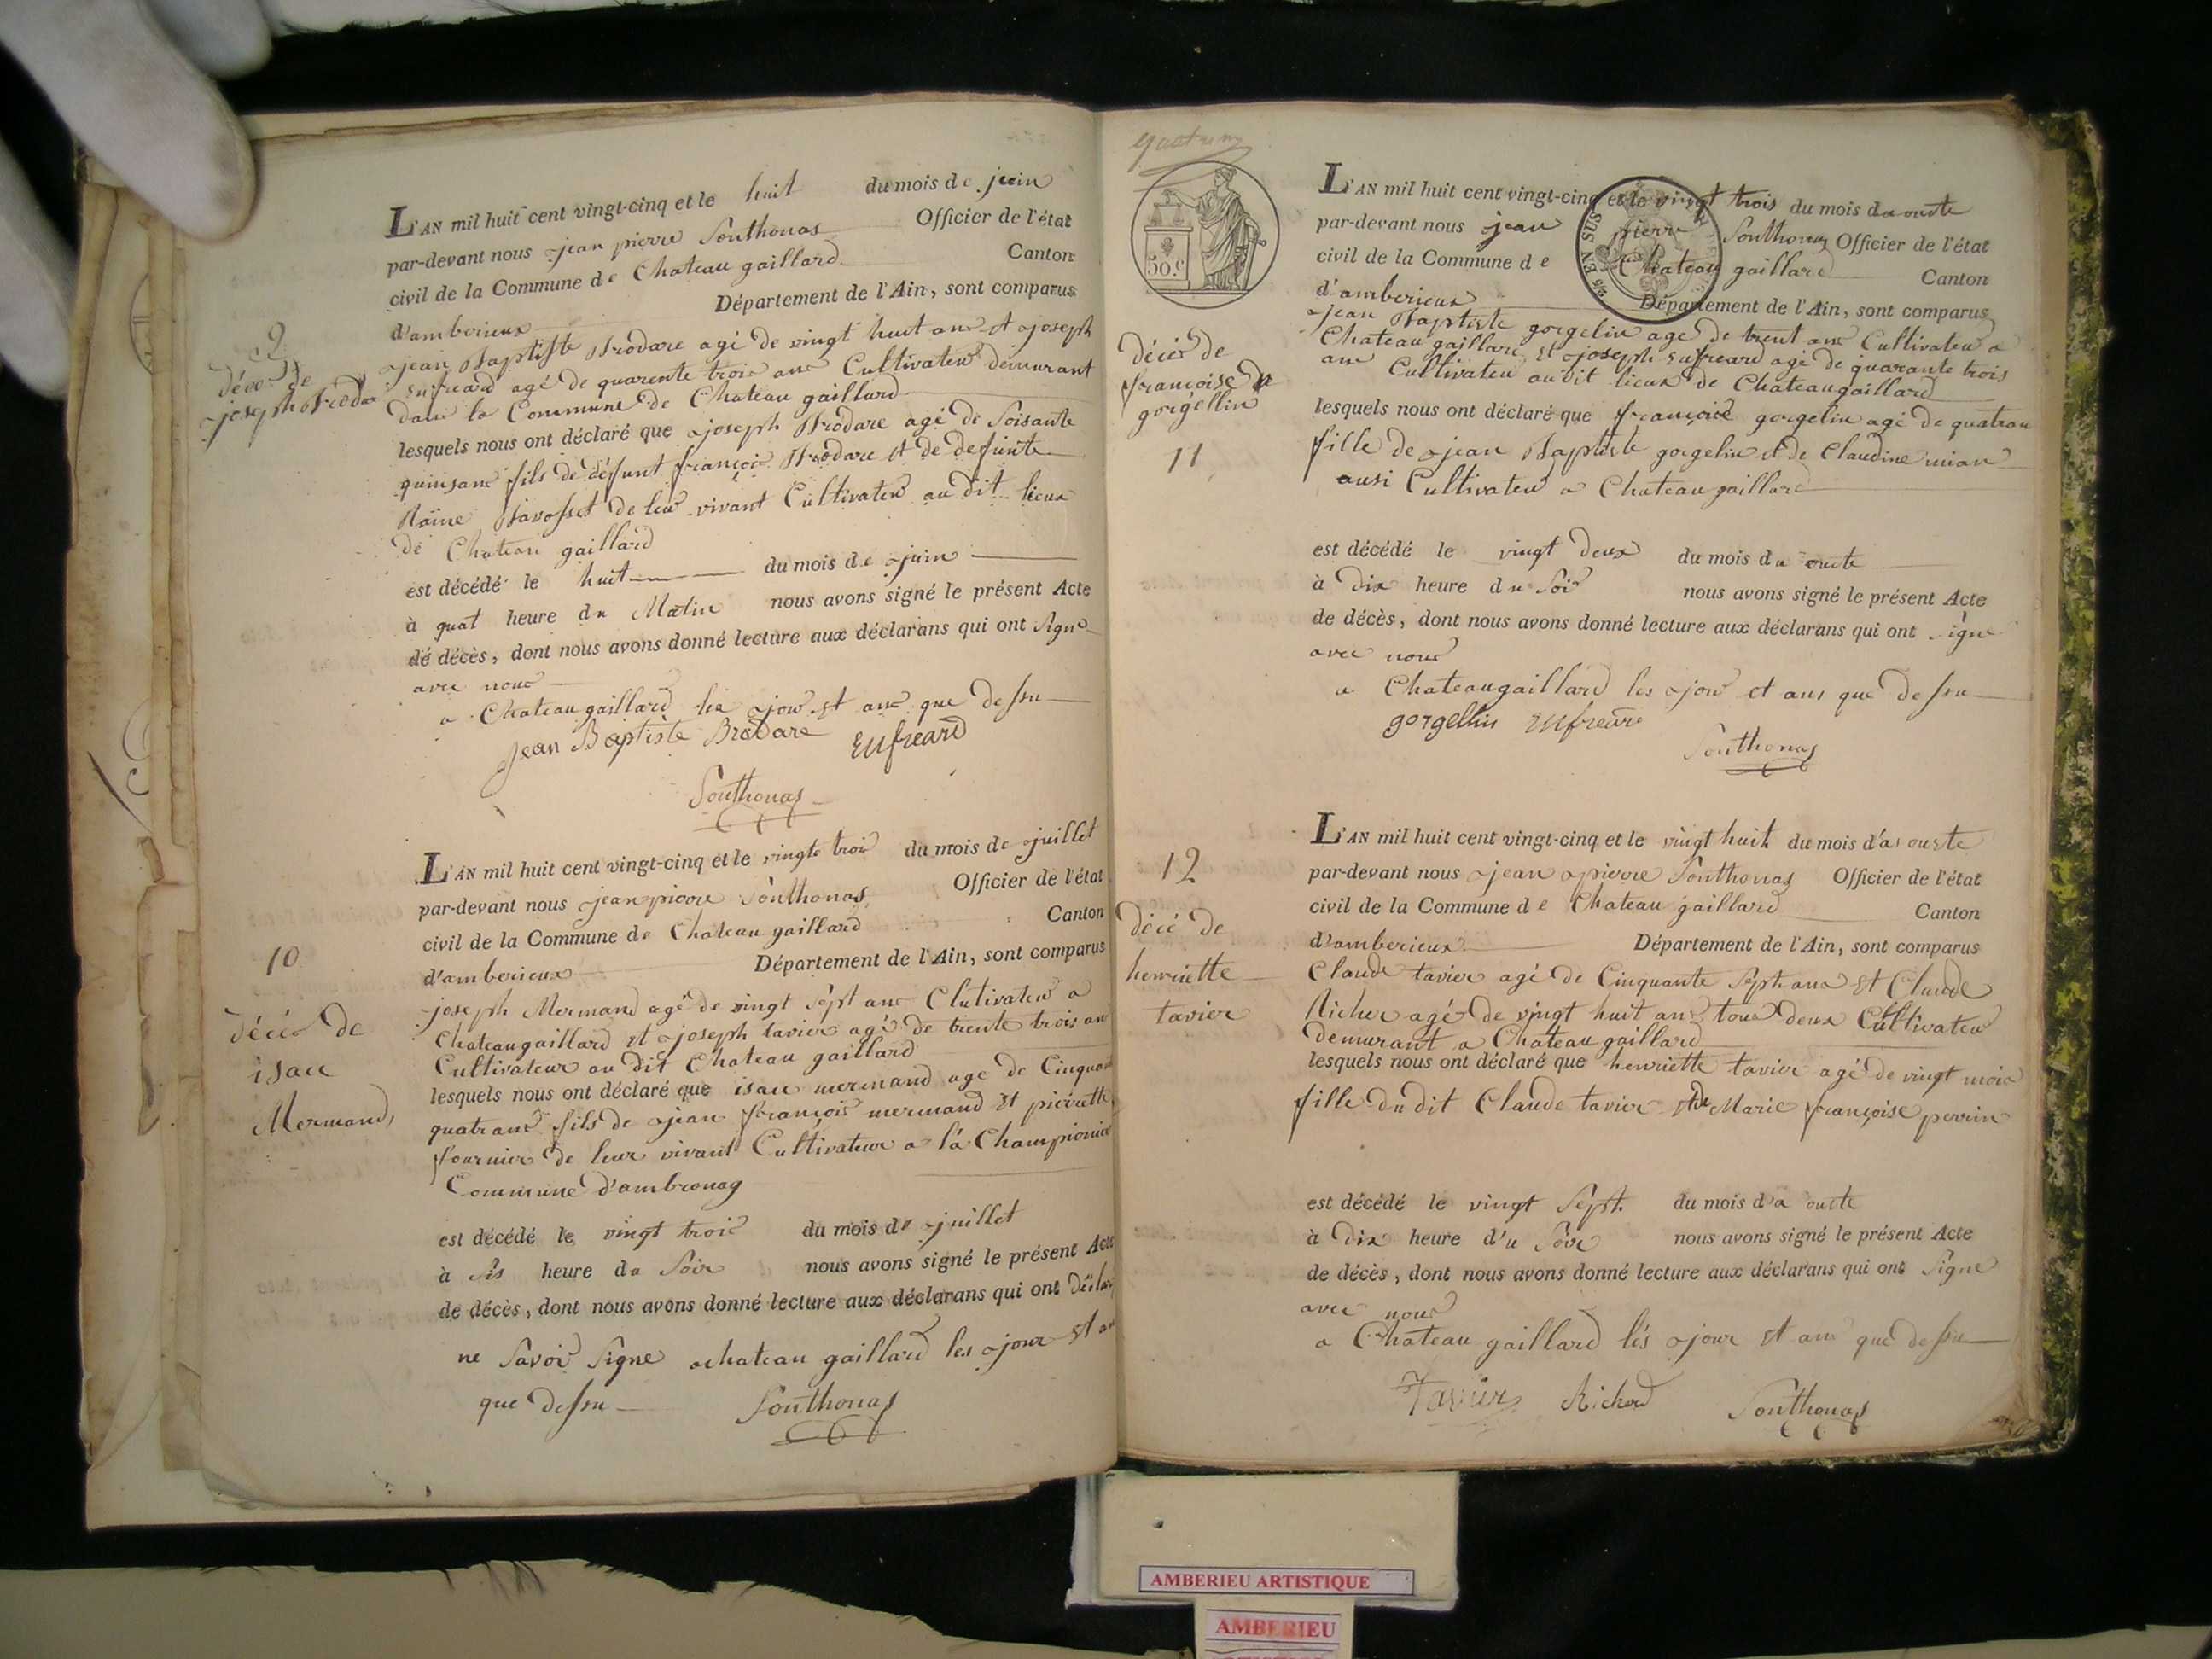 9
décé de
joseph Brodar
L'AN mil huit cent vingt-cinq et le huit du mois de juin
par-devant nous jean pierre Sonthonas Officier de l'état
civil de la Commune de Chateau gaillard Canton
d'amberieux Département de l'Ain, sont comparus
jean Baptiste Brodare agé de vingt huit ans et joseph
Enfreard agé de quarente trois ans Cultivateur demurant
dans la Commune de Chateau gaillard
lesquels nous ont déclaré que joseph Brodare agé de Soisante
quinsans fils de défunt françois Brodare et de defuinte
Bavosset de leur vivant Cultivateur au dit lieux
de Chateau gaillard
est décédé le huit du mois de juin
à quat heure du Matin nous avons signé le présent Acte
de décès, dont nous avons donné lecture aux déclarans qui ont Signe
avec nous
a Chateau gaillard les jour et ans que dessu
Jean Baptiste Brodare Enfreard
Sonthonas
10
décés de
isacc
Mermand
L'AN mil huit cent vingt-cinq et le vingte trois du mois de juillet
par-devant nous jean pierre Sonthonas Officier de l'état
civil de la Commune de Chateau gaillard Canton
d'amberieux Département de l'Ain, sont comparus
joseph Mermand agé de vingt sept ans Clutivateur a
Chateaugaillard et joseph tavier agé de trente trois an
Cultivateur au dit Chateau gaillard
lesquels nous ont déclaré que isacc mermand age de Cinquan
quatrans fils de jean françois mermand et pierrette
fournier de leur vivant Cultivateur a la Championier
Commune d'ambronay
est décédé le vingt trois du mois de juillet
à sis heure du Soir nous avons signé le présent Acte
de décès, dont nous avons donné lecture aux déclarans qui ont Déclar
ne Savoir Signe achateau gaillard les jour et an
que dessu Sonthonas
50.c
EN SUS
décés de
françoise
gorgellin
11
L'AN mil huit cent vingt-cinq et le vingt trois du mois da ouste
par-devant nous jean pierre Sonthonas Officier de l'état
civil de la Commune de Chateau gaillard Canton
d'amberieux Département de l'Ain, sont comparus
jean Baptiste gorgelin agé de trent ans Cultivateur a
Chateau gaillard et joseph Enfreard agé de quarante trois
ans Cultivateu audit lieux de Chateaugaillard
lesquels nous ont déclaré que françoise gorgelin agé de quatran
fille de jean Baptiste gorgelin et de Claudine mian
ausi Cultivateur a Chateau gaillard
est décédé le vingt deux du mois da ouste
à dix heure du Soir nous avons signé le présent Acte
de décès, dont nous avons donné lecture aux déclarans qui ont signe
avec nous
a Chateaugaillard les jour et ans que dessu
gorgellin Enfreare
Sonthonas
12
décé de
henriette
tavier
L'AN mil huit cent vingt-cinq et le vingt huit du mois d'a ouste
par-devant nous jean pierre Sonthonas Officier de l'état
civil de la Commune de Chateau gaillard Canton
d'amberieux Département de l'Ain, sont comparus
Claude tavier agé de Cinquante Sept ans et Claude
Richer agé de vingt huit ans tous deux Cultivateur
demurant a Chateau gaillard
lesquels nous ont déclaré que henriette tavier agé de vingt mois
fille du dit Claude tavier et de Marie françoise perrin
est décédé le vingt Sept du mois da ouste
à dix heure d'u Soir nous avons signé le présent Acte
de décès, dont nous avons donné lecture aux déclarans qui ont Signe
avec nous
a Chateau gaillard lés jour et ans que dessu
Tavier Richerd Sonthonas
AMBERIEU ARTISTIQUE
AMBERIEU